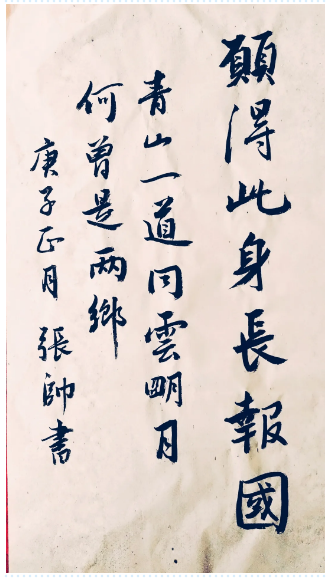 願得此身長報國
青山一道同雲明月
何曾是两鄉
庚子正月 張帥書